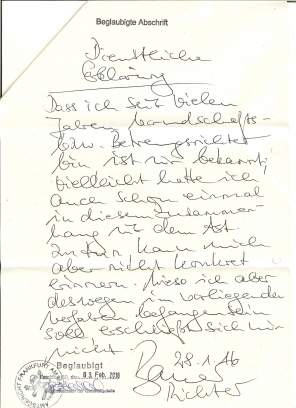 Beglaubigte Abschrift
Dienstliche
Erklärung
Dass ich seit vielen
Jahren Vormundschafts-
bzw. Betreuungsrichter
bin ist mir bekannt,
vielleicht hatte ich
auch schon einmal
in diesem Zusammen-
hang mit dem Ast
zu tun kann mich
aber nicht konkret
erinnern. Wieso ich aber
deswegen im vorliegenden
Verfahren befangen sein
soll erschließt sich mir
nicht. 28.1.16
Richter
Beglaubigt
03. Feb. 2016